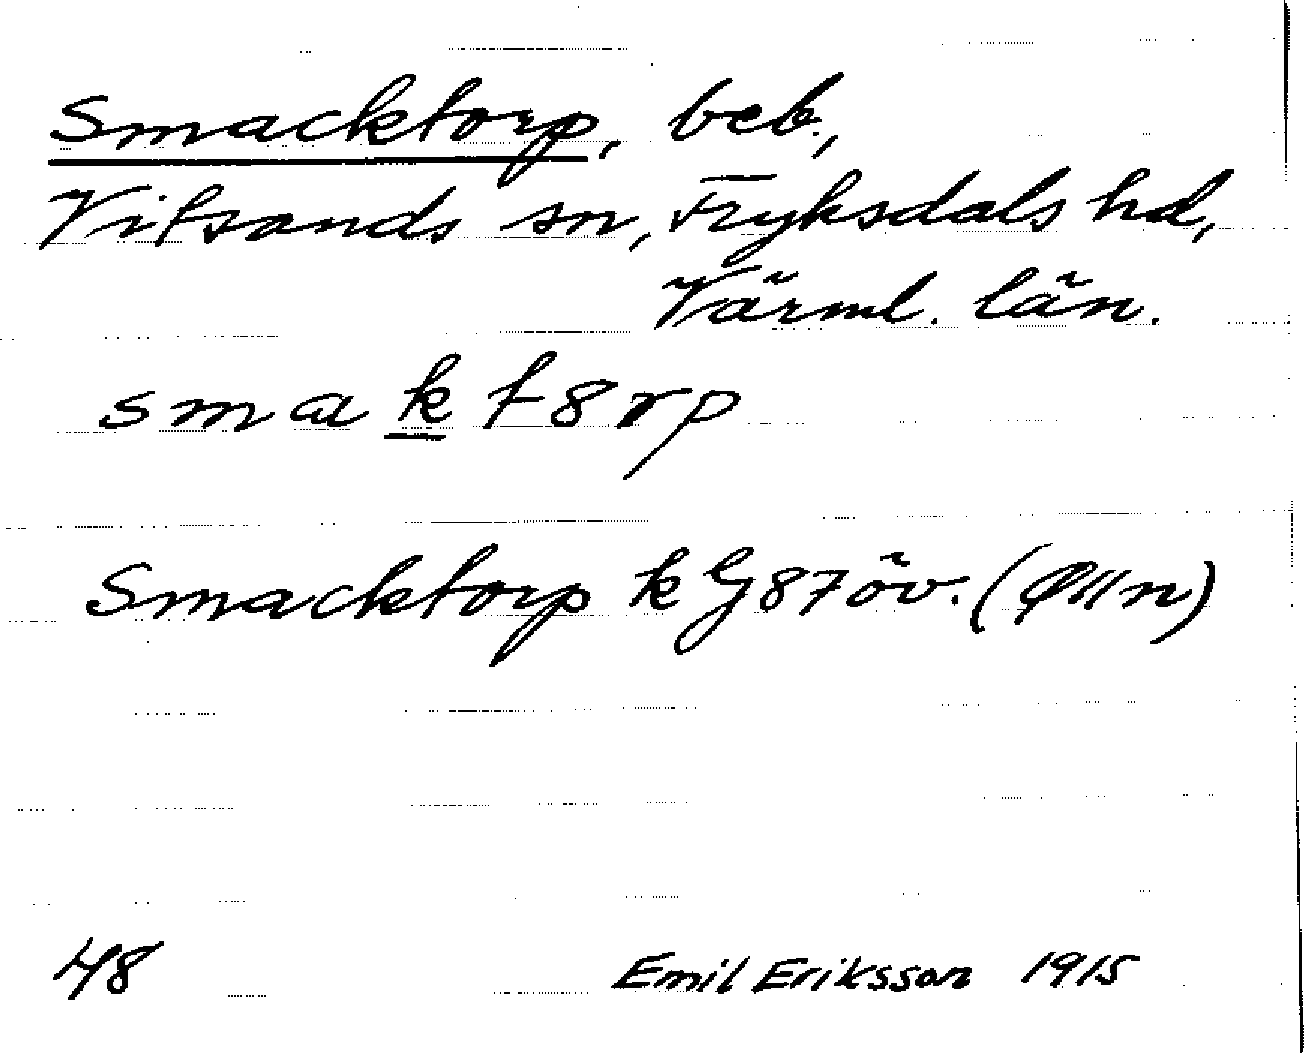 Smacktorp, beb.,
Vitsands sn, Fryksdals hd,
Värml. län.
smakt8rp
Smacktorp k G87öv.
48 Emil Eriksson 1915